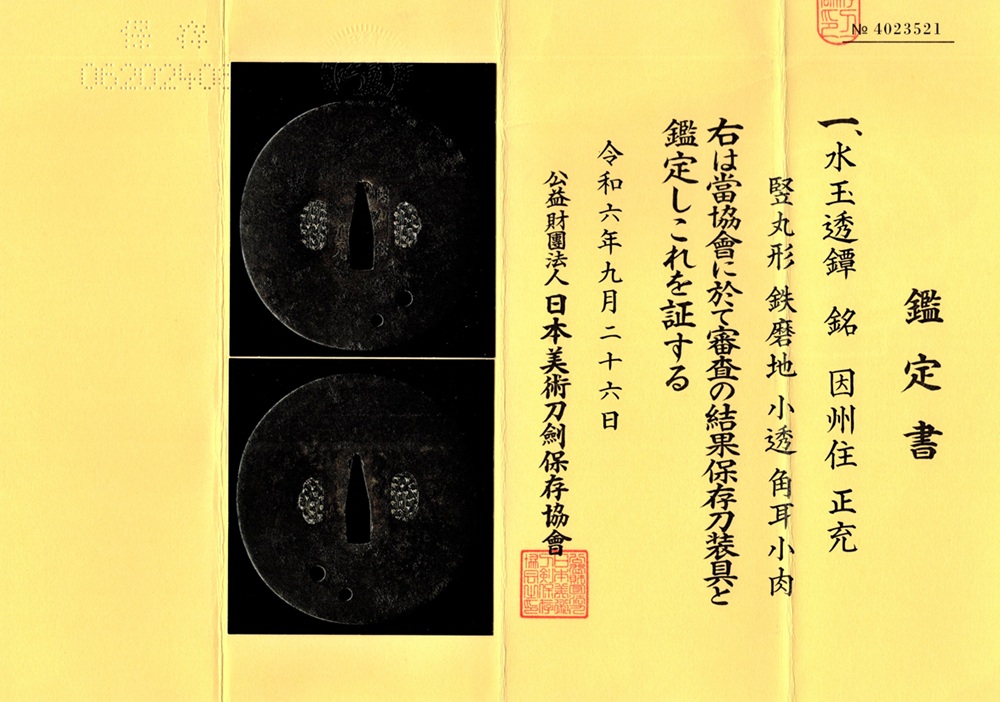 № 4023521
鑑定書
一、水玉透鐔 銘 因州住 正充
竪丸形 鉄磨地 小透 角耳小肉
右は當協會に於て審査の結果保存刀装具と
鑑定しこれを証する
令和六年九月二十六日
公益財團法人 日本美術刀劍保存協會
保存